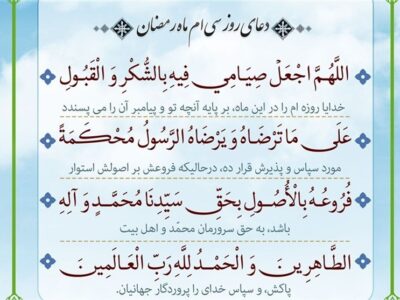 دعای روز سی ام ماه رمضان
اللَّهُمَّ اجْعَلْ صِيَامِي فِيهِ بِالشُّكْرِ وَ الْقَبُولِ
خدایا روزه ام را در این ماه، بر پایه آنچه تو و پیامبر آن را می پسندد
عَلَى مَا تَرْضَاهُ وَ يَرْضَاهُ الرَّسُولُ مُحْكَمَةً
مورد سپاس و پذیرش قرار ده، درحالیکه فروعش بر اصولش استوار
فُرُوعُهُ بِالْأُصُولِ بِحَقِّ سَيِّدِنَا مُحَمَّدٍ وَ آلِهِ
باشد، به حق سرورمان محمّد و اهل بیت
الطَّاهِرِينَ وَ الْحَمْدُ لِلَّهِ رَبِّ الْعَالَمِينَ
پاکش، و سپاس خدای را پروردگار جهانیان.